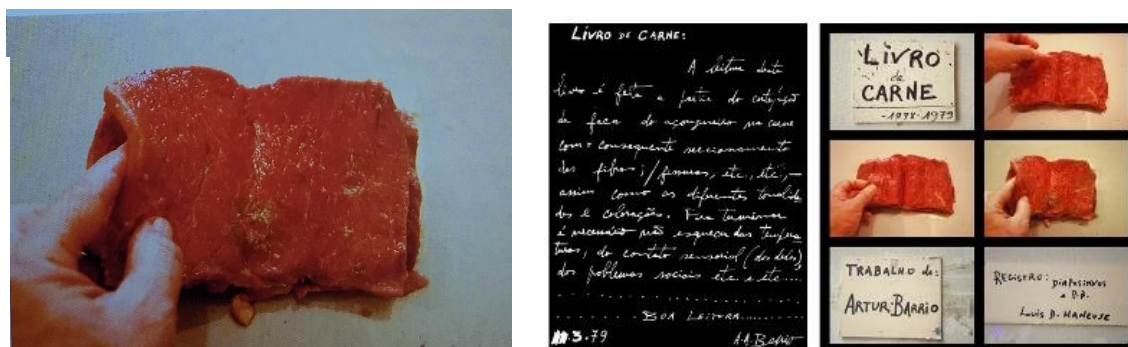 LIVRO DE CARNE:
A leitura deste
livro é feita a partir do corte/ação
da faca do açougueiro na carne
com o consequente seccionamento
das fibras; / fissuras, etc., etc., —
assim como as diferentes tonalida
des e colorações. Para terminar
é necessário não esquecer das tempera
turas, do contato sensorial (dos dedos),
dos problemas sociais etc. e etc....
BOA LEITURA
.3.79
A.A.Barrio
LIVRO
de
CARNE
-1978-1979
TRABALHO de:
ARTUR BARRIO
REGISTRO: DIAPOSITIVOS
e P.B.
Louis D. HANEUSE